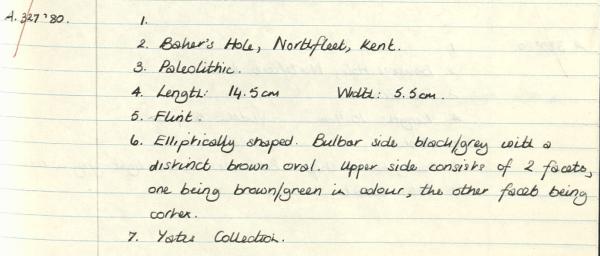 A. 327'80. 1.
2. Baker's Hole, Northfleet, Kent.
3. Paleolithic.
4. Length: 14.5cm Width: 5.5cm.
5. Flint
6. Elliptically shaped. Bulbar side black/grey with a
distinct brown oval. Upper side consists of 2 facets,
one being brown/green in colour, the other facet being
cortex.
7. Yates Collection.